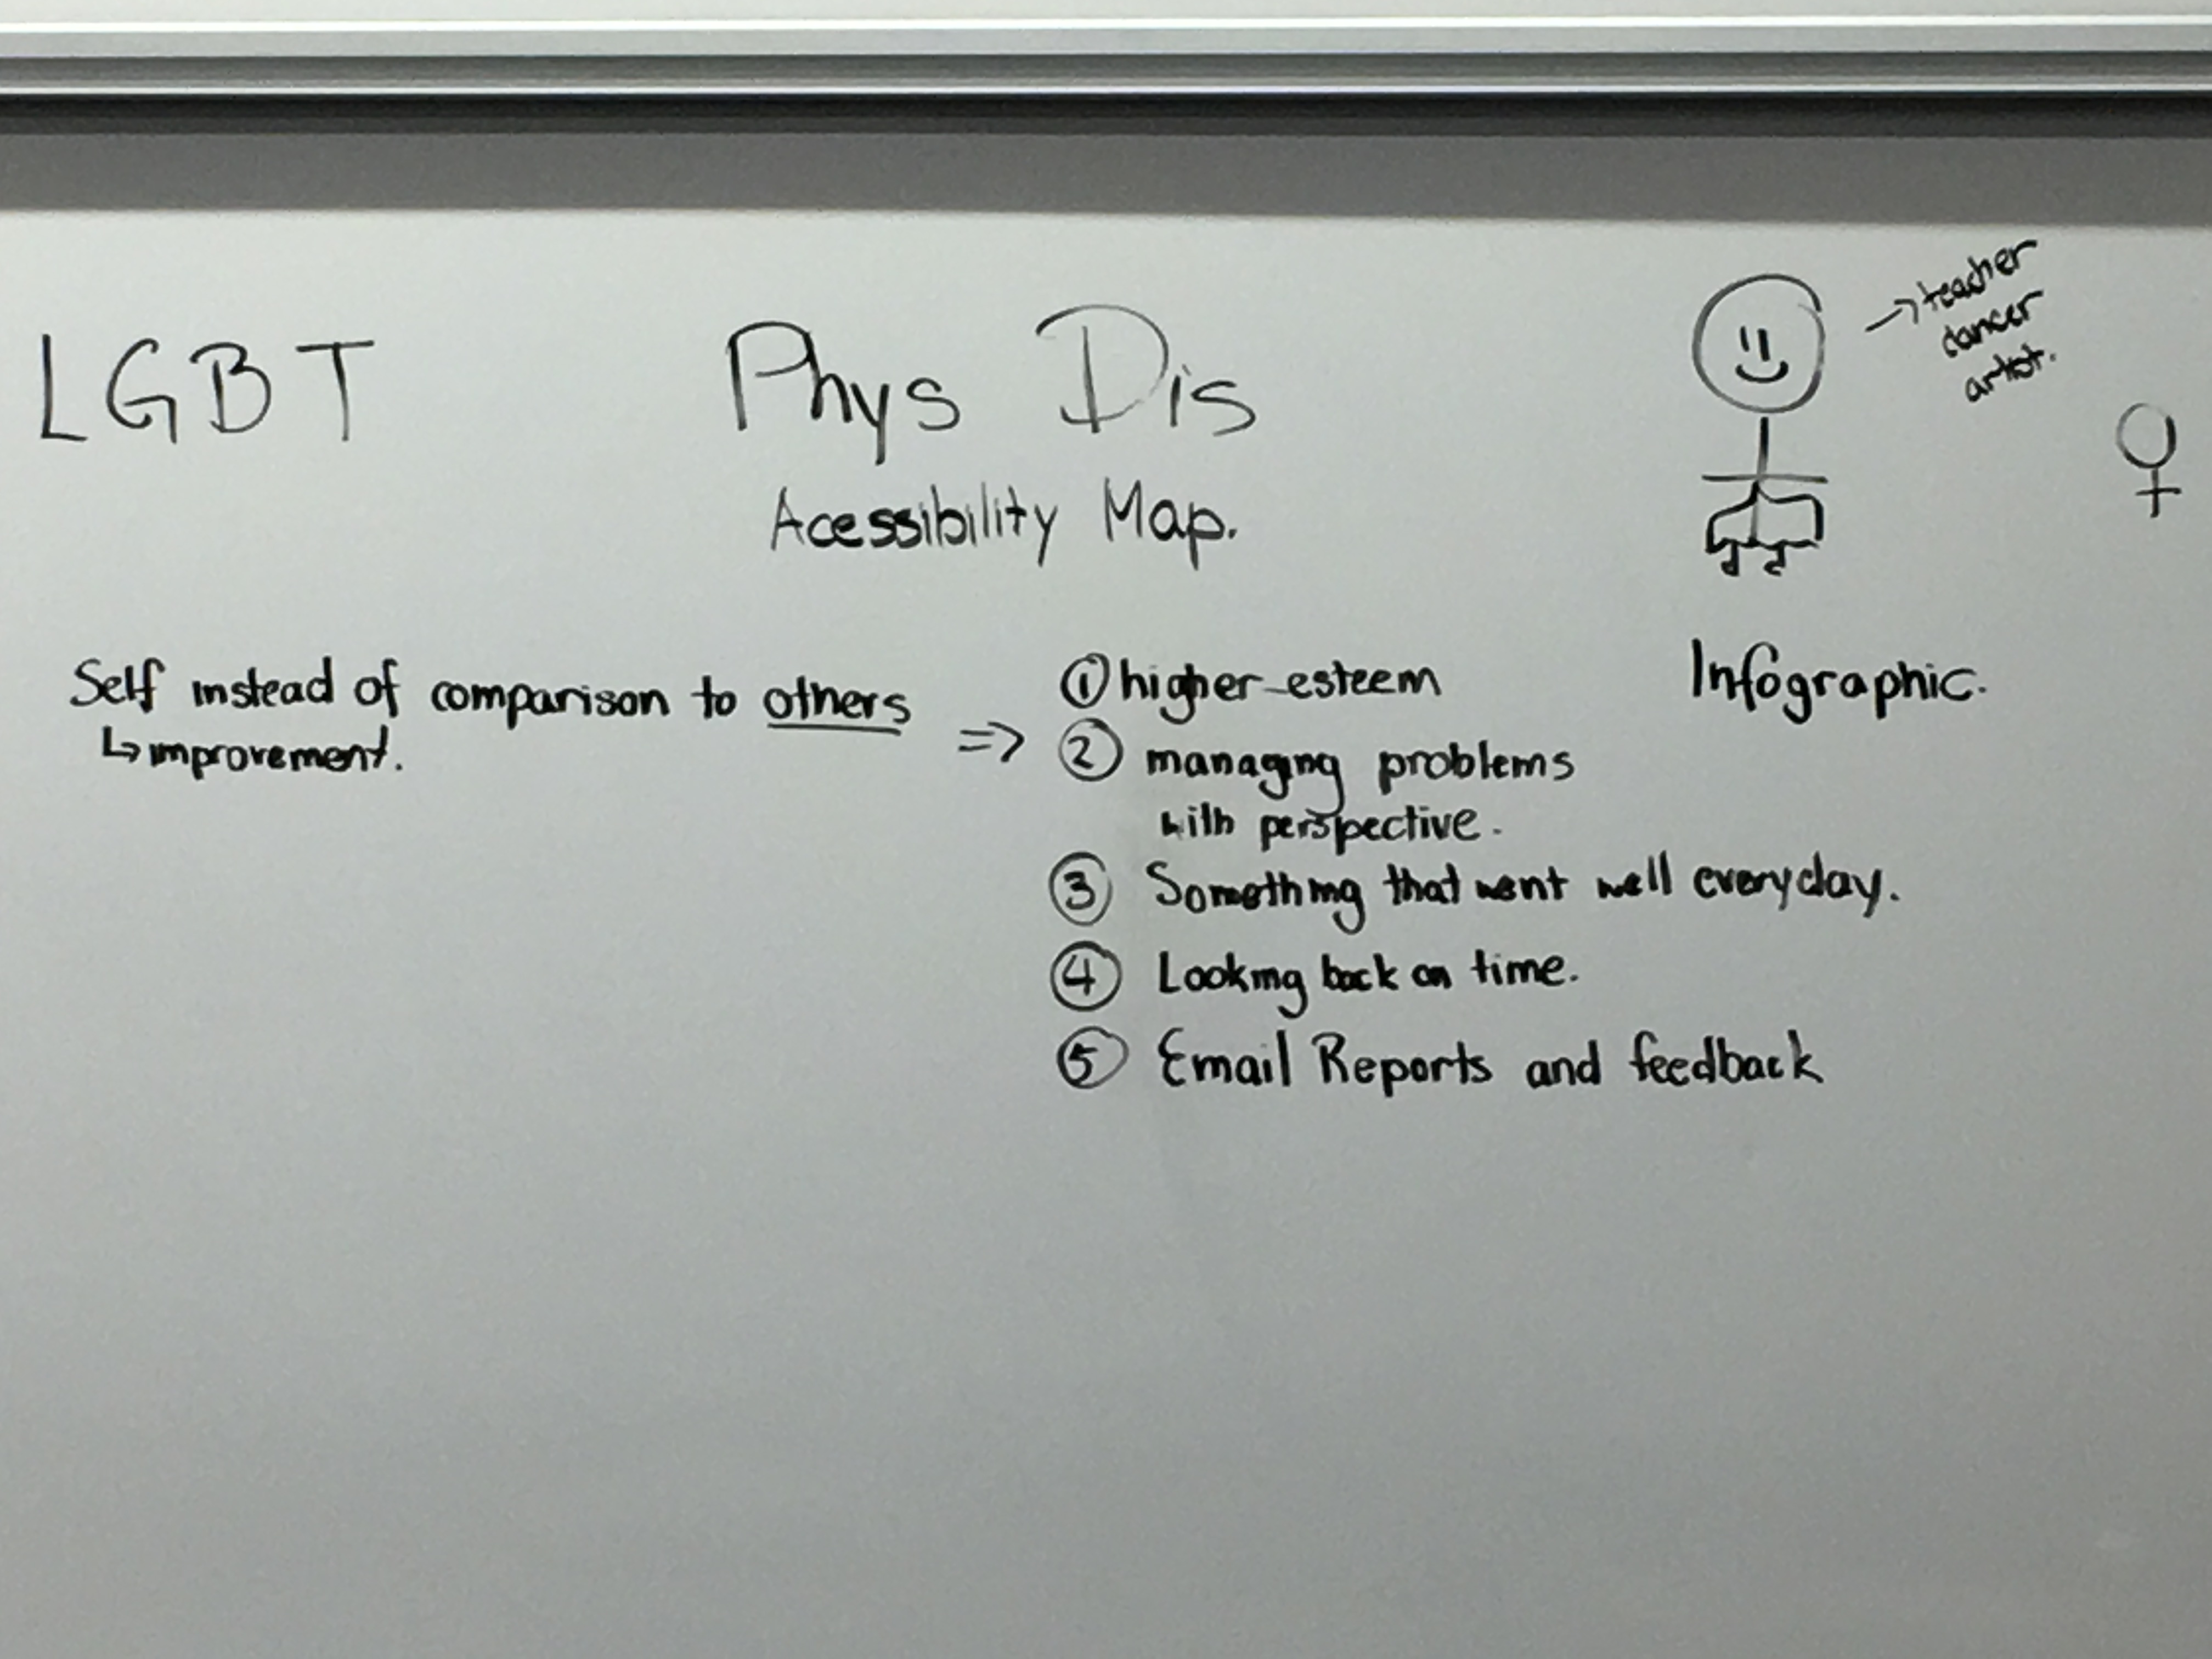 LGBT
Phys Dis
Acessibility Map.
→ teacher
dancer
artist.
Infographic.
Self instead of comparison to others
↳ improvement.
=>
① higher esteem
② managing problems
with perspective.
③ Something that went well everyday.
④ Looking back on time.
⑤ Email Reports and feedback